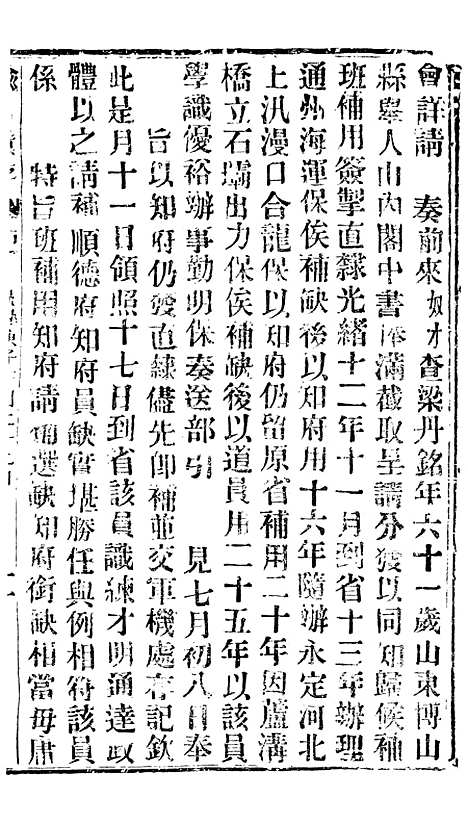 會詳請　奏前來奴才查梁丹銘年六十一歲山東博山
縣舉人由內閣中書俸滿截取呈請分發以同知歸候補
班補用簽掣直隸光緒十二年十一月到省十三年辦理
通州海運保俟補缺後以知府用十六年隨辦永定河北
上汛漫口合龍保以知府仍留原省補用二十年因蘆溝
橋立石壩出力保俟補缺後以道員用二十五年以該員
學識優裕辦事勤明保奏送部引　見七月初八日奉
旨以知府仍發直隸儘先卽補並交軍機處存記欽
此是月十一日領照十七日到省該員識練才明通達政
體以之請補順德府知府員缺實堪勝任與例相符該員
係　特旨班補用知府請補選缺知府銜缺相當毋庸